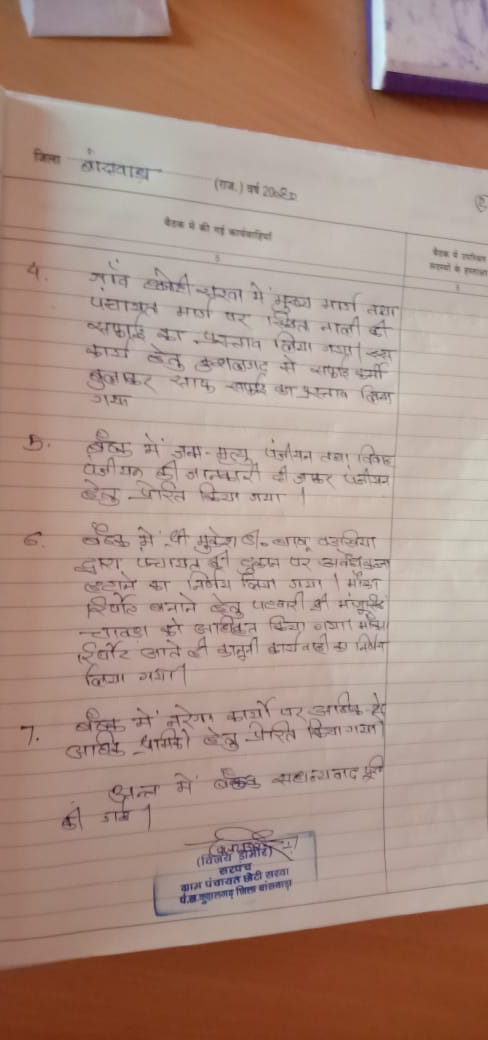 जिला बांसवाडा (राज.) वर्ष 2020
बैठक में की गई कार्यवाहियां
बैठक में उपस्थित
सदस्यों के हस्ताक्षर
4. गाँव छोटी सरवा में मुख्य मार्ग तथा
पंचायत मार्ग पर स्थित नाली की
सफाई का प्रस्ताव लिया गया। इस
कार्य हेतु कुशलगढ से सफाई कर्मी
बुलाकर साफ सफाई का प्रस्ताव लिया
गया
5. बैठक में जन्म-मृत्यु पंजीयन तथा विवाह
पंजीयन की जानकारी दी जाकर पंजीयन
हेतु प्रेरित किया गया।
6. बैठक में श्री मुकेश बाबू
द्वारा पंचायत की दुकान पर अवैध कब्जा
हटाने का निर्णय लिया गया। मौका
रिपोर्ट बनाने हेतु पटवारी श्री
को अधिकृत किया गया। मौका
रिपोर्ट आते ही कानूनी कार्यवाही का निर्णय
लिया गया।
7. बैठक में नरेगा कार्यो पर अधिक से
अधिक श्रमिको हेतु प्रेरित किया गया।
अन्त में बैठक सधन्यवाद पूर्ण
की गई।
(विजय डामोर)
सरपंच
ग्राम पंचायत छोटी सरवा
पं.स.कुशलगढ़ जिला बांसवाड़ा